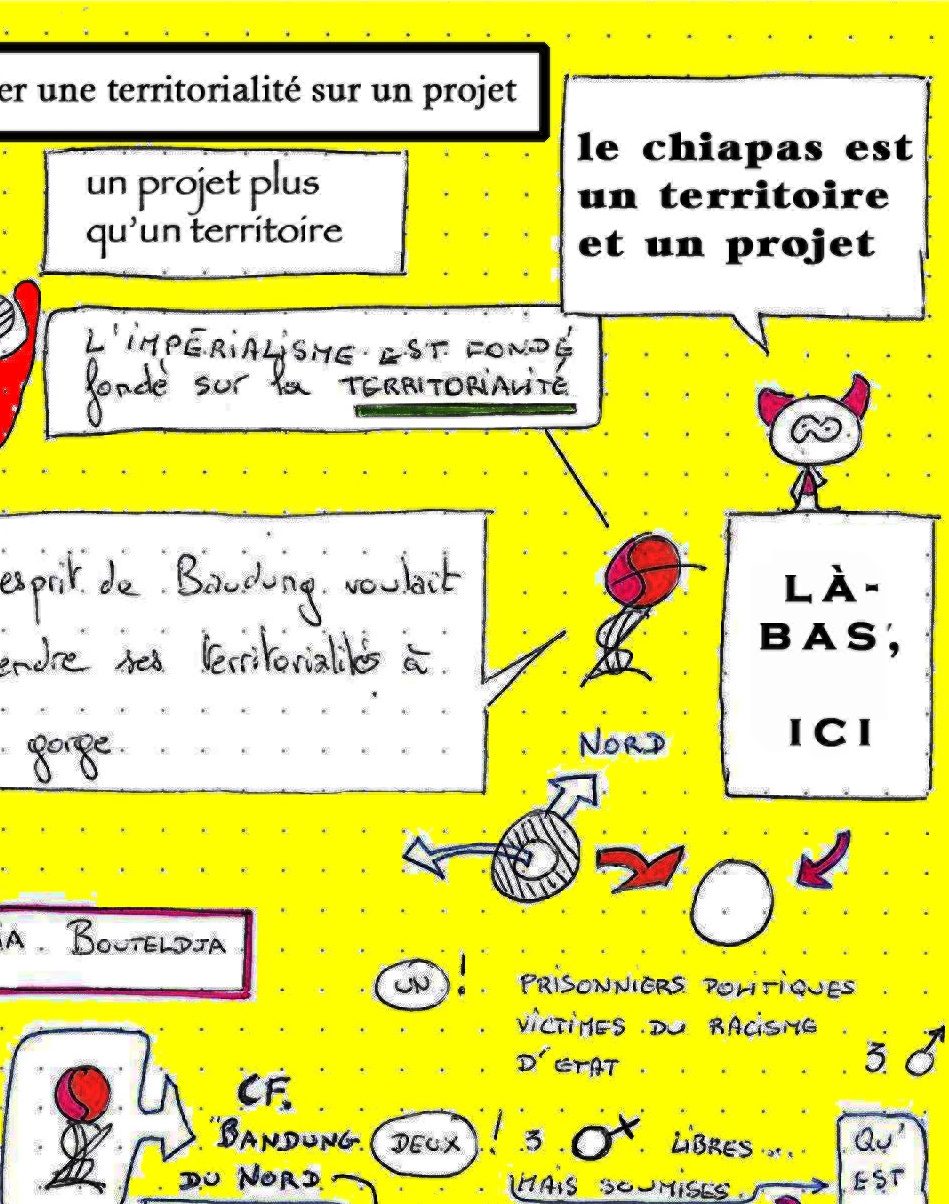 er une territorialité sur un projet
le chiapas est
un territoire
et un projet
un projet plus
qu'un territoire
L'IMPÉRIALISME EST FONDÉ
fondé sur la TERRITORIALITÉ
esprit de Bandung voulait
endre ses territorialités à
gorge
LÀ-
BAS,
ICI
NORD
IA BOUTELDJA
UN !
PRISONNIERS POLITIQUES
VICTIMES DU RACISME
D'ETAT
3
CF.
"BANDUNG
DU NORD
DEUX !
3 LIBRES...
MAIS SOUMISES
QU'
EST